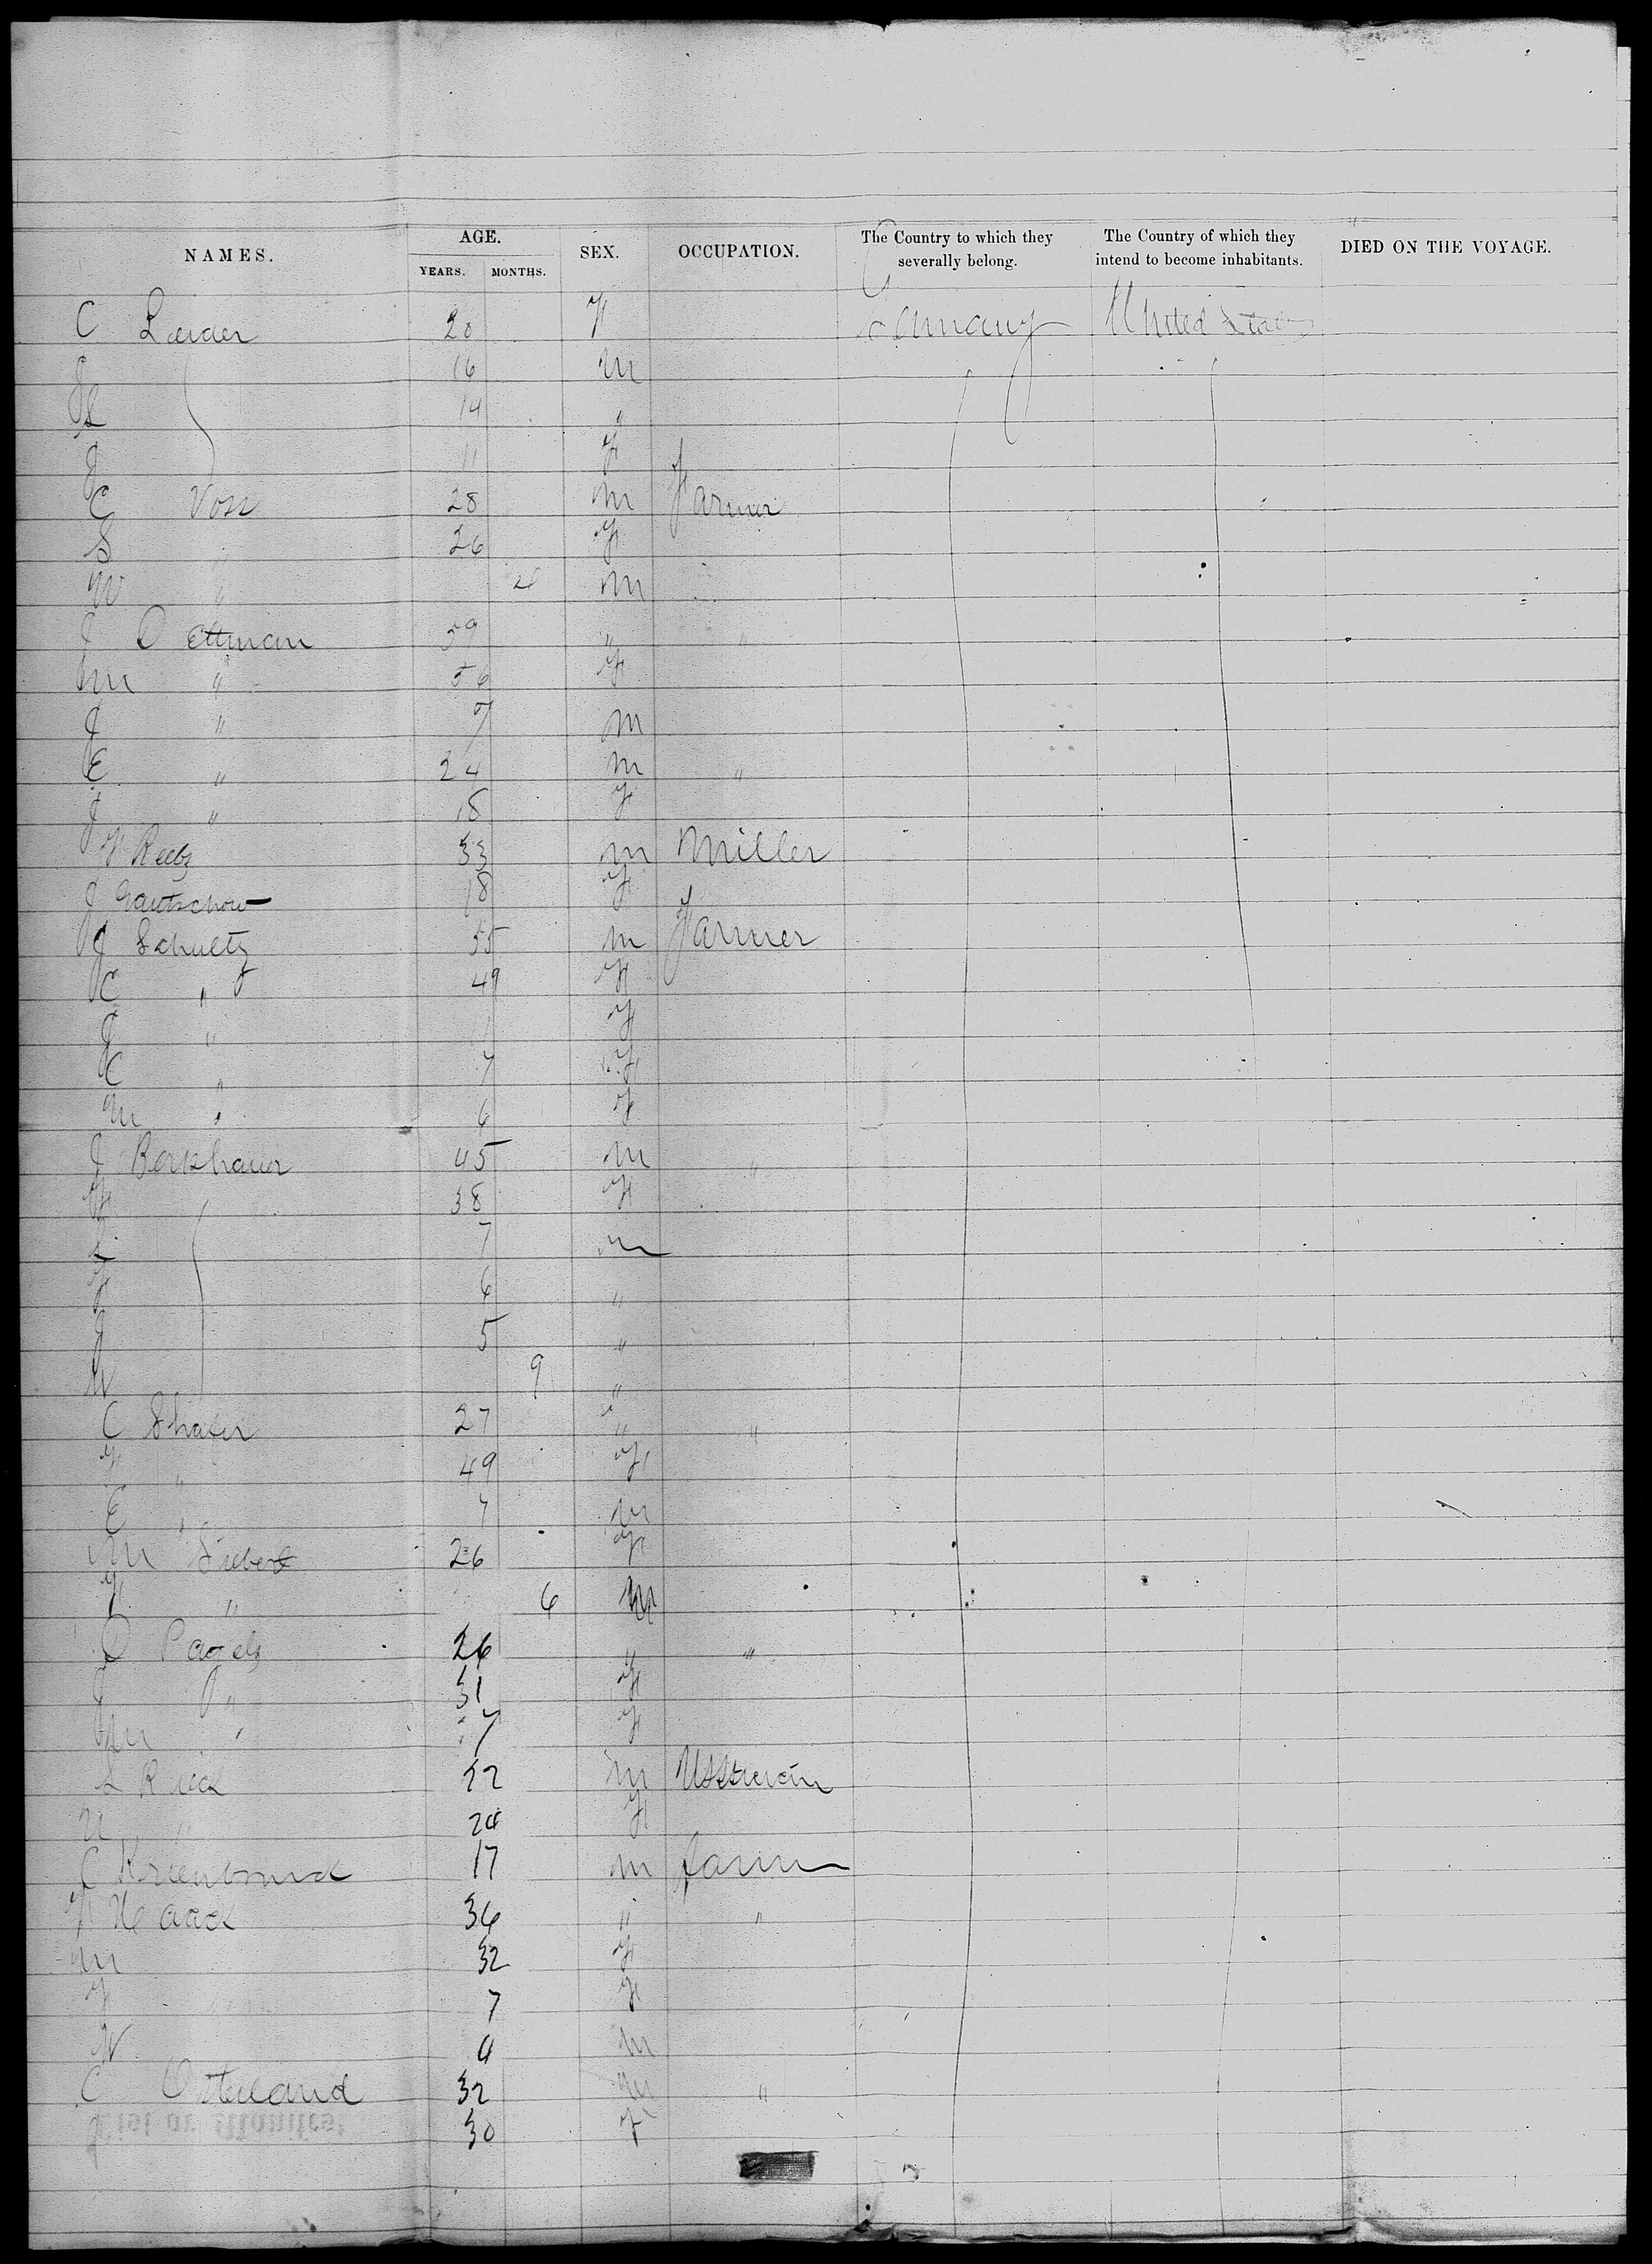 NAMES. AGE. YEARS. MONTHS. SEX. OCCUPATION. The Country to which they severally belong. The Country of which they intend to become inhabitants. DIED ON THE VOYAGE.
C 20 F Germany United States
16 m
L 14 "
J 11 F
C Voss 28 m Farmer
S " 26 F
W " m
J Dettman 59 " "
M " 56 F
J " 7 m
E " 24 m "
J " 18 F
F Reetz 33 m Miller
J Gautschow 18 F
J Schultz 55 m Farmer
C " 49 F
J " 11 F
C " 7 F
M " 6 F
J 45 m "
F 38 F
L 7 m
F 6 "
J 5 "
W 9 "
C Shafer 27 " "
F " 49 F
E " 7 m
M Siebert 26 F
F " 6 m
D Pagels 26 " "
J " 31 F
M " 7 F
L m
" 24 F
C 17 m Farmer
F Haack 36 " "
M 32 F
F 7 F
W 4 m
C Osterland 32 m "
30 F